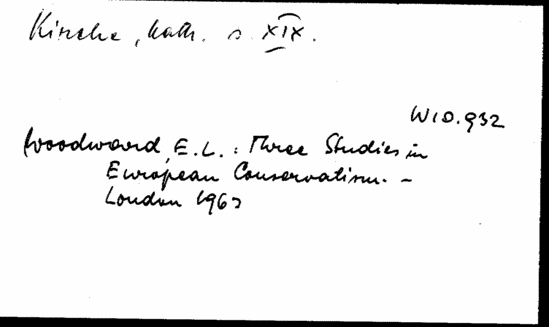 Kirche, kath. s XIX.
W10.932
Woodward, E.L.: Three Studies in
European Conservatism. -
London 1963